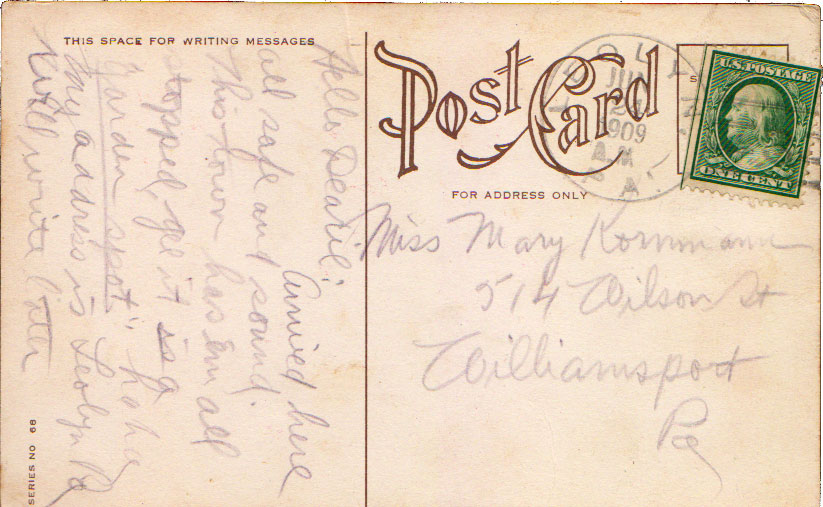 THIS SPACE FOR WRITING MESSAGES
Hello Dearie:
Arrived here
all safe and sound.
This town has em all
stopped, gee it is a
"garden spot" ha ha
My address is Leolyn Pa
Will write later
SERIES NO 68
Post Card
FOR ADDRESS ONLY
JUN
24
1909
A.M.
U.S. POSTAGE
ONE CENT
Miss Mary Kornmann
514 Wilson St
Williamsport
Pa